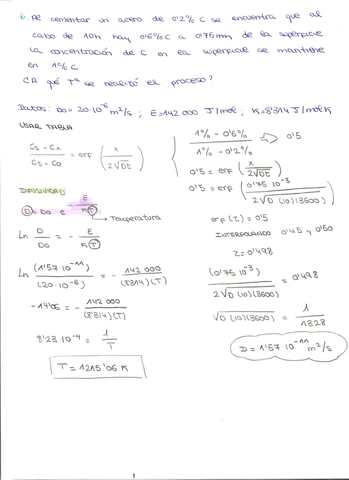 6. Al cementar un acero de 0'2% C se encuentra que al
cabo de 10h hay 0'6% C a 0'76mm de la superficie
la concentración de C en la superficie se mantiene
en 1% C
¿A qué Tª se realizó el proceso?
Datos: D₀ = 20·10⁻⁶ m²/s ; E = 142.000 J/mol ; K = 8'314 J/molK
USAR TABLA
(Cs - Cx)/(Cs - C₀) = erf (x/(2√Dt))
DIFUSIVIDAD
D = D₀ · e^(-E/K(T)) → Temperatura
Ln D/D₀ = - E/K(T)
Ln (1'57·10⁻¹¹)/(20·10⁻⁶) = - 142 000/(8'314)(T)
-14'05 = - 142 000/(8'314)(T)
8'23·10⁻⁴ = 1/T
T = 1215'06 K
(1% - 0'6%)/(1% - 0'2%) → 0'5
0'5 = erf (x/(2√Dt))
0'5 = erf (0'75·10⁻³/(2√D (10)(3600)))
erf (z) = 0'5
INTERPOLANDO 0'45 y 0'50
z = 0'498
(0'75·10⁻³)/(2√D (10)(3600)) = 0'498
√D (10)(3600) = 1/1328
D = 1'57·10⁻¹¹ m²/s